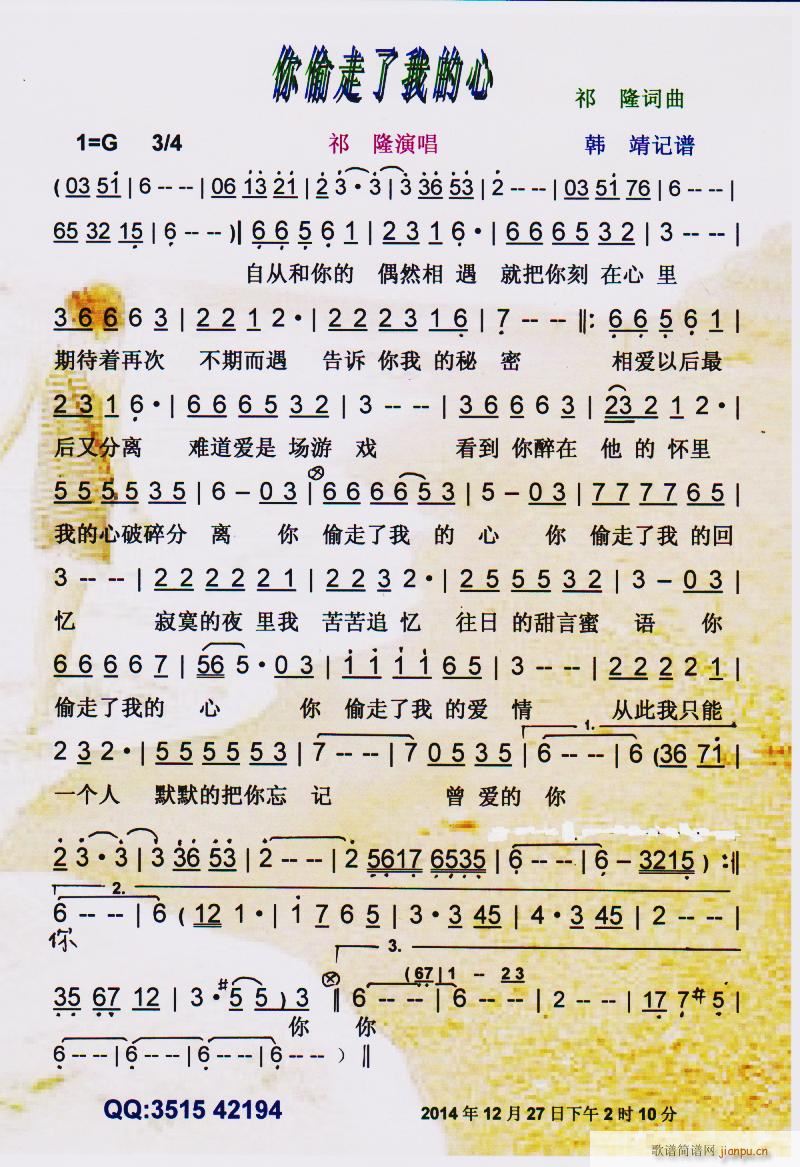 你偷走了我的心
祁 隆词曲
1=G 3/4 祁 隆演唱 韩 靖记谱
(03 51 | 6 -- -- | 06 13 21 | 2 3· 3 | 3 36 53 | 2 -- -- | 03 51 76 | 6 -- -- |
65 32 15 | 6 -- -- )‖ 6 6 5 6 1 | 2 3 1 6· | 6 6 6 5 3 2 | 3 -- -- |
自从和你的 偶然相 遇 就把你刻 在心 里
3 6 6 6 3 | 2 2 1 2· | 2 2 2 3 1 6 | 7 -- -- ‖: 6 6 5 6 1 |
期待着再次 不期而遇 告诉 你我 的秘 密 相爱以后最
2 3 1 6· | 6 6 6 5 3 2 | 3 -- -- | 3 6 6 6 3 | 23 2 1 2· |
后又分离 难道爱是 场游 戏 看到 你醉在 他 的 怀里
5 5 5 5 3 5 | 6 – 0 3 | 6 6 6 6 5 3 | 5 – 0 3 | 7 7 7 7 6 5 |
我的心破碎分 离 你 偷走了我 的 心 你 偷走了我 的回
3 -- -- | 2 2 2 2 2 1 | 2 2 3 2· | 2 5 5 5 3 2 | 3 – 0 3 |
忆 寂寞的夜 里我 苦苦追 忆 往日 的甜言蜜 语 你
6 6 6 6 7 | 56 5· 0 3 | 1 1 1 1 6 5 | 3 -- -- | 2 2 2 2 1 |
偷走了我的 心 你 偷走了我 的爱 情 从此我只能
1.
2 3 2· | 5 5 5 5 5 3 | 7 -- -- | 7 0 5 3 5 | 6 -- -- | 6 (36 71 |
一个人 默默的把你忘 记 曾 爱的 你
2 3· 3 | 3 36 53 | 2 -- -- | 2 5617 6535 | 6 -- -- | 6 – 3215 ) :‖
2.
6 -- -- | 6 (12 1· | 1 7 6 5 | 3· 3 45 | 4· 3 45 | 2 -- -- |
你
3.
(67 | 1 -- 2 3
35 67 12 | 3· #5 5 ) 3 ‖ 6 -- -- | 6 -- -- | 2 -- -- | 17 7 #5 |
你 你
6 -- -- | 6 -- -- | 6 -- -- | 6 -- -- ) ‖
QQ:3515 42194
2014 年 12 月 27 日下午 2 时 10 分
歌谱简谱网 jianpu.cn